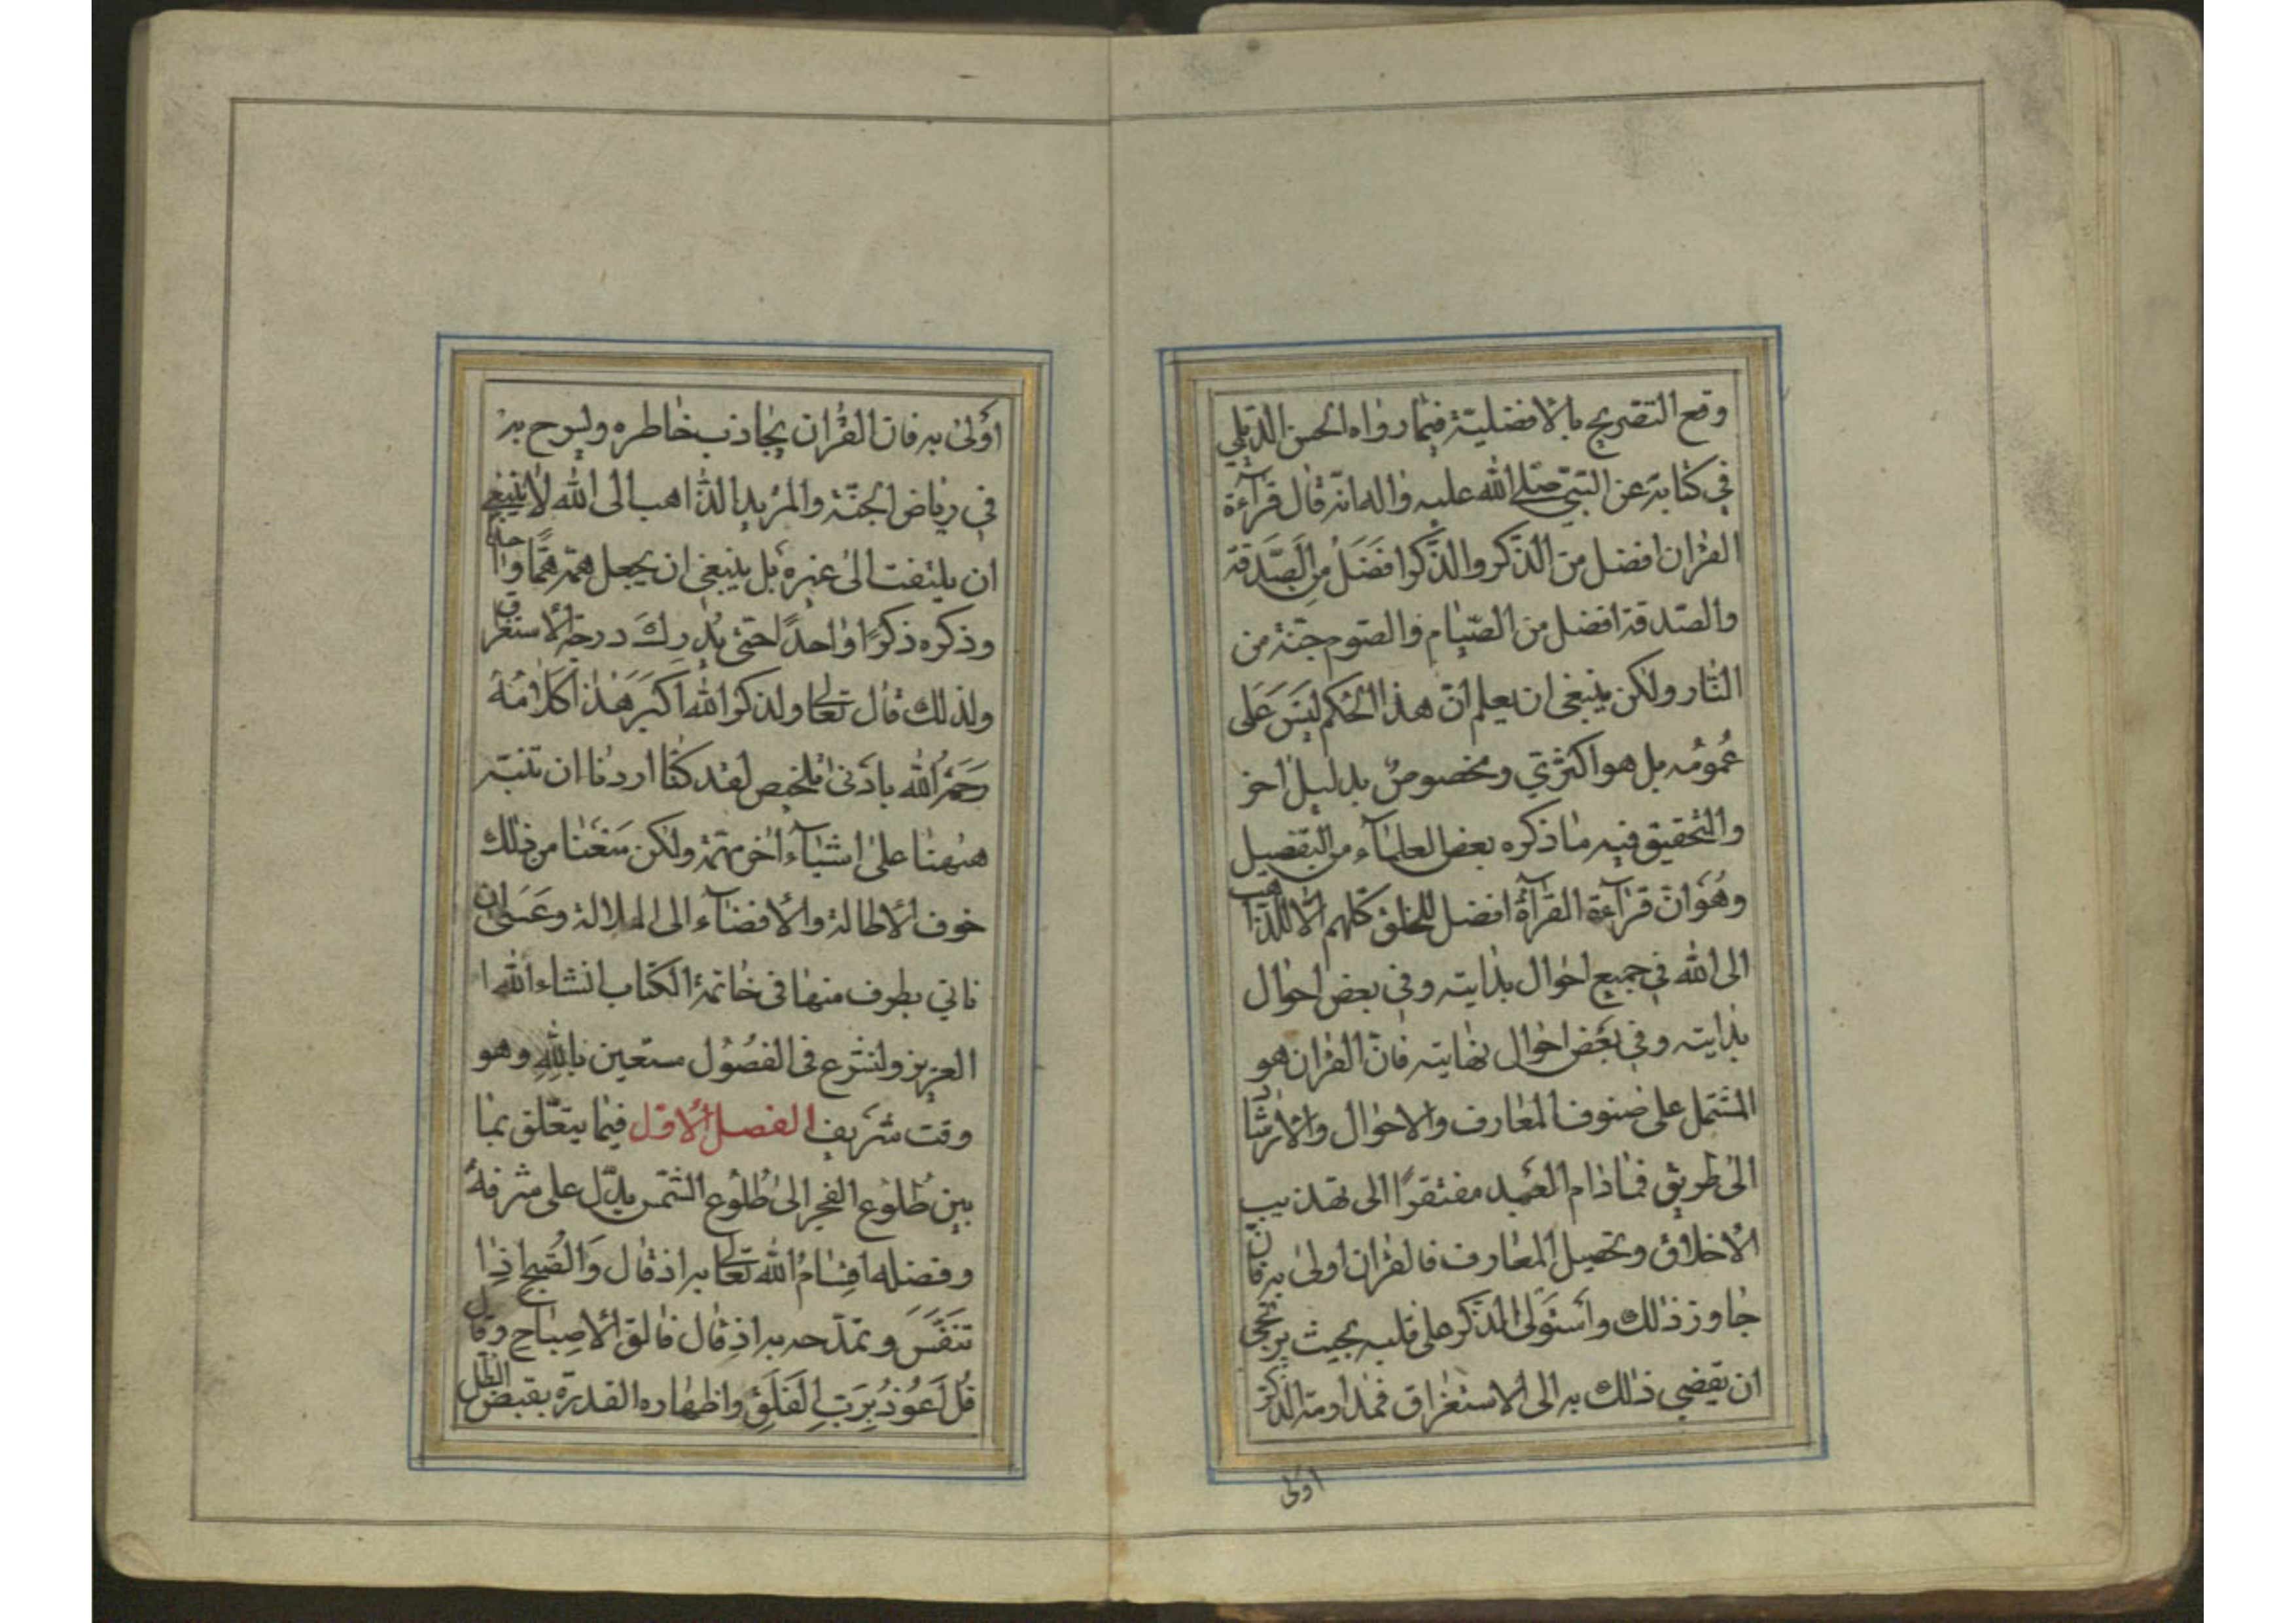 وقع التصريح بالافضليّة فيما رواه الحسن الديلمي
في كتابه عن النبيّ صلى الله عليه واله انه قال قراءة
القران افضل من الذكر والذكر افضل من الصدقة
والصدقة افضل من الصيام والصوم جنة من
النار ولكن ينبغي ان يعلم ان هذا الحكم ليس على
عمومه بل هو اكثري ومخصوص بدليل اخر
والتحقيق فيه ما ذكره بعض العلماء من التفصيل
وهو ان قراءة القرآة افضل للخلق كلهم الا للذاهب
الى الله في جميع احوال بدايته وفي بعض احوال
بدايته وفي بعض احوال نهايته فان القران هو
المشتمل على صنوف المعارف والاحوال والارشاد
الى طريق فما دام العبد مفتقرا الى تهذيب
الاخلاق وتحصيل المعارف فالقران اولى به فان
جاوز ذلك واستولى الذكر على قلبه بحيث يرتجى
ان يقضي ذلك به الى الاستغراق فمداومة الذكر
اولى
اولى به فان القران يجاذب خاطره وليسرح به
في رياض الجنة والمريد الذاهب الى الله لا ينبغي
ان يلتفت الى غيره بل ينبغي ان يجعل همه هما واحدا
وذكره ذكرا واحدا حتى يدرك درجة الاستغراق
ولذلك قال تعالى ولذكر الله اكبر هذا كلامه
رحمه الله بادنى تلخيص لقد كنا اردنا ان ننبه
هيهنا على اشياء اخر مهمة ولكن منعنا من ذلك
خوف الاطالة والافضاء الى الملالة وعسى ان
ناتي بطرف منها في خاتمة الكتاب انشاء الله ا
العزيز ولنشرع في الفصول مستعين بالله وهو
وقت شريف الفصل الاول فيما يتعلق بما
بين طلوع الفجر الى طلوع الشمس يدل على شرفه
وفضله اقسام الله تعالى به اذ قال والصبح اذا
تنفس وتمدحه به اذ قال فالق الاصباح وقال
قل اعوذ برب الفلق واظهاره القدرة بقبض الظل